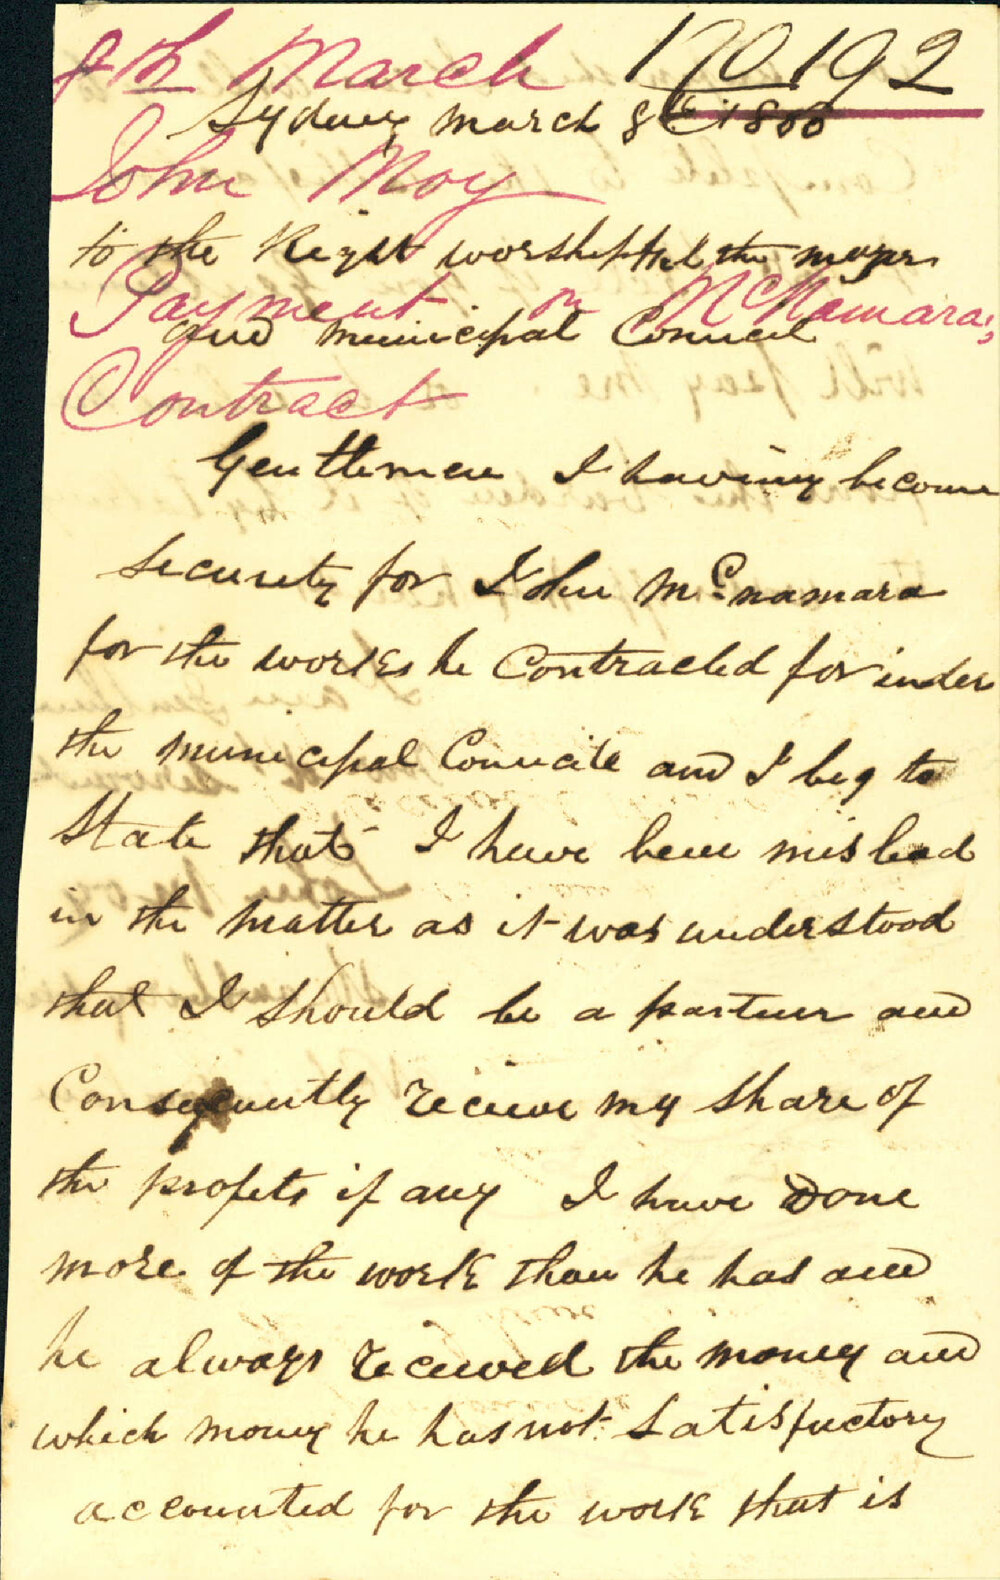 8th March 170 192
Sydney march 8th 1866
John Moy
to the Right worshipful the mayor
Payment on McNamara's
and municipal Council
Contract
Gentlemen I having become
security for John McNamara
for the works he Contracted for inder
the municipal Councile and I beg to
State that I have been mislead
in the matter as it was understood
that I should be a partner and
Consequently receive my share of
the profets if any I have Done
more of the work than he has and
he always received the money and
which money he has not Satisfactory
accounted for the work that is